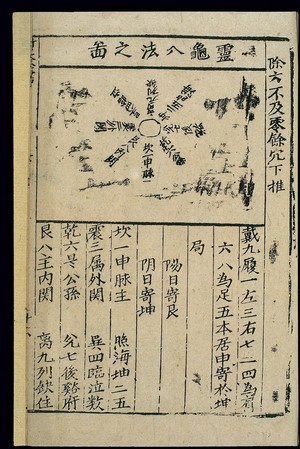 除六不及零餘穴下推
靈龜八法之啚
坎申脉一
戴九履一左三右七二四為肩
六八為足五本居中寄於坤
局
陽日寄艮
陰日寄坤
坎一申脉主 照海坤二五
震三属外関 巽四臨泣数
乾六是公孫 兌七後谿府
艮八主内関 离九列缺住